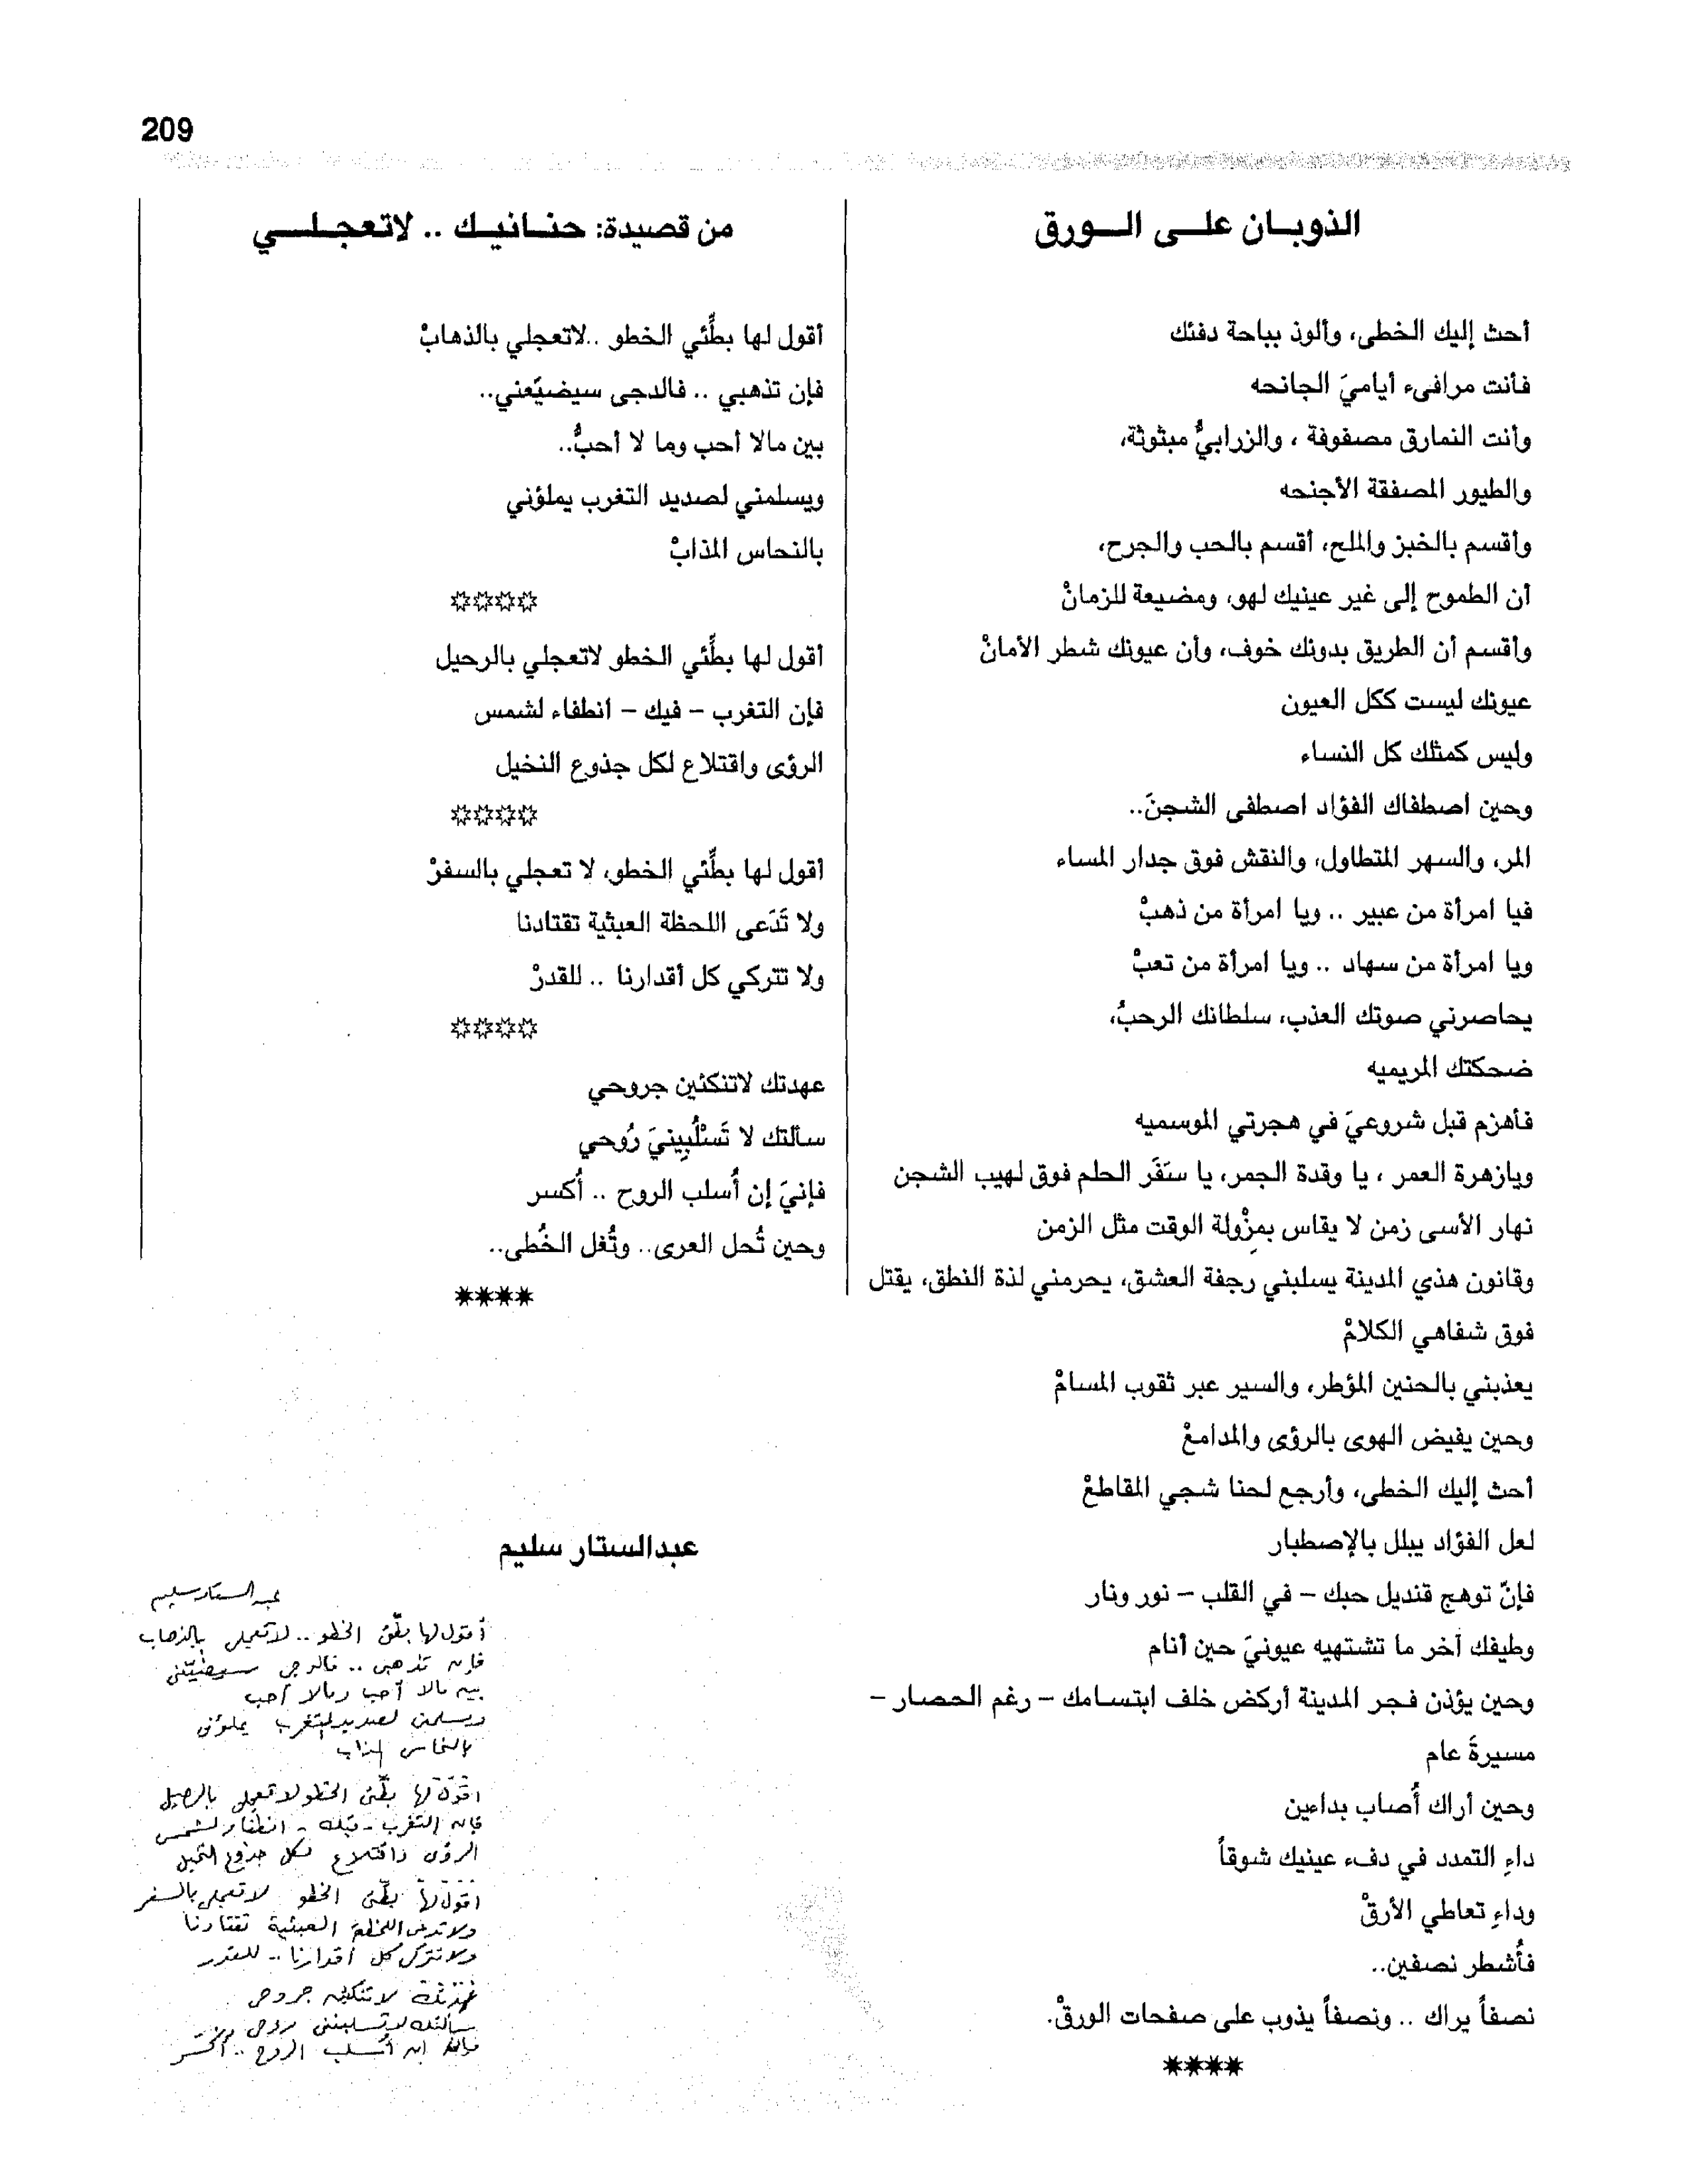 209
الذوبان على الورق
أحث إليك الخطى، وألوذ بباحة دفئك
فأنت مرافىء أياميَ الجانحه
وأنت النمارق مصفوفة ، والزرابيُّ مبثوثة،
والطيور المصفقة الأجنحه
وأقسم بالخبز والملح، أقسم بالحب والجرح،
أن الطموح إلى غير عينيك لهو، ومضيعة للزمانْ
وأقسم أن الطريق بدونك خوف، وأن عيونك شطر الأمانْ
عيونك ليست ككل العيون
وليس كمثلك كل النساء
وحين اصطفاك الفؤاد اصطفى الشجنَ..
المر، والسهر المتطاول، والنقش فوق جدار المساء
فيا امرأة من عبير .. ويا امرأة من ذهبْ
ويا امرأة من سهاد .. ويا امرأة من تعبْ
يحاصرني صوتك العذب، سلطانك الرحبُ،
ضحكتك المريميه
فأهزم قبل شروعيَ في هجرتي الموسميه
ويازهرة العمر ، يا وقدة الجمر، يا سَفَر الحلم فوق لهيب الشجن
نهار الأسى زمن لا يقاس بمِزْولة الوقت مثل الزمن
وقانون هذي المدينة يسلبني رجفة العشق، يحرمني لذة النطق، يقتل
فوق شفاهي الكلامْ
يعذبني بالحنين المؤطر، والسير عبر ثقوب المسامْ
وحين يفيض الهوى بالرؤى والمدامعْ
أحث إليك الخطى، وأرجع لحنا شجي المقاطعْ
لعل الفؤاد يبلل بالإصطبار
فإنّ توهج قنديل حبك – في القلب – نور ونار
وطيفك آخر ما تشتهيه عيونيَ حين أنام
وحين يؤذن فجر المدينة أركض خلف ابتسامك – رغم الحصار –
مسيرةَ عام
وحين أراك أُصاب بداءين
داءِ التمدد في دفء عينيك شوقاً
وداءِ تعاطي الأرقْ
فأُشطر نصفين..
نصفاً يراك .. ونصفاً يذوب على صفحات الورقْ.
****
من قصيدة: حنانيك .. لاتعجلي
أقول لها بطِّئي الخطو ..لاتعجلي بالذهابْ
فإن تذهبي .. فالدجى سيضيّعني..
بين مالا أحب وما لا أحبُّ..
ويسلمني لصديد التغرب يملؤني
بالنحاس المذابْ
****
أقول لها بطِّئي الخطو لاتعجلي بالرحيل
فإن التغرب – فيك – انطفاء لشمس
الرؤى واقتلاع لكل جذوع النخيل
****
أقول لها بطِّئي الخطو، لا تعجلي بالسفرْ
ولا تَدَعى اللحظة العبثية تقتادنا
ولا تتركي كل أقدارنا .. للقدرْ
****
عهدتك لاتنكئين جروحي
سألتك لا تَسْلُبِينيَ رُوحي
فإنيَ إن أُسلب الروح .. أُكسر
وحين تُحل العرى.. وتُغل الخُطى..
****
عبدالستار سليم
عبد الستار سليم
أقول لها بطّئى الخطو .. لا تعجلى بالذهاب
فإن تذهبى .. فالدجى سيضيّعنى
بين مالا أحب وما لا أحب
ويسلمنى لصديد التغرب يملؤنى
بالنحاس المذاب
أقول لها بطّئى الخطو لا تعجلى بالرحيل
فإن التغرب - فيك - انطفاء لشمس
الرؤى واقتلاع لكل جذوع النخيل
أقول لها بطّئى الخطو لا تعجلى بالسفر
ولا تدعى اللحظة العبثية تقتادنا
ولا تتركى كل أقدارنا .. للقدر
عهدتك لا تنكئين جروحى
سألتك لا تسلبينى روحى
فإنى إن أُسلب الروح .. أُكسر